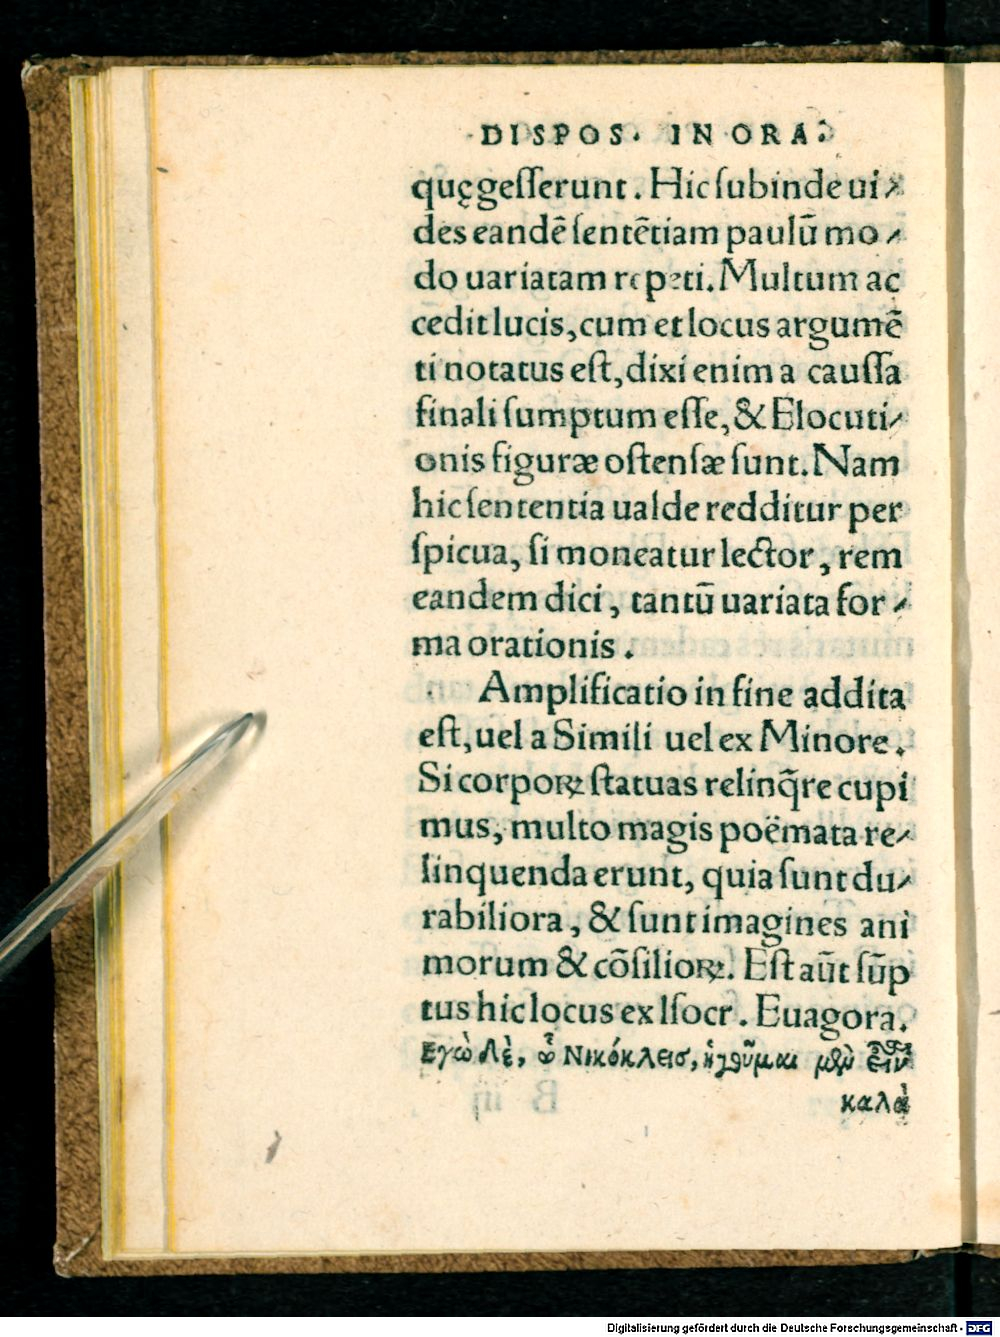 DISPOS. IN ORA:
quę gesserunt. Hic subinde ui-
des eandē sentētiam paulū mo-
do uariatam repeti. Multum ac
cedit lucis, cum et locus argumē
ti notatus est, dixi enim a caussa
finali sumptum esse, & Elocuti-
onis figuræ ostensæ sunt. Nam
hic sententia ualde redditur per
spicua, si moneatur lector, rem
eandem dici, tantū uariata for-
ma orationis.
Amplificatio in fine addita
est, uel a Simili uel ex Minore.
Si corporꝝ statuas relinq̄re cupi
mus, multo magis poëmata re-
linquenda erunt, quia sunt du-
rabiliora, & sunt imagines ani
morum & cōsilioꝝ. Est aūt sūp
tus hic locus ex Isocr. Euagora.
Εγὼ δὲ, ὦ Νικόκλεισ, ἡγοῦμαι μὲν εἶναι
καλὰ
Digitalisierung gefördert durch die Deutsche Forschungsgemeinschaft - DFG